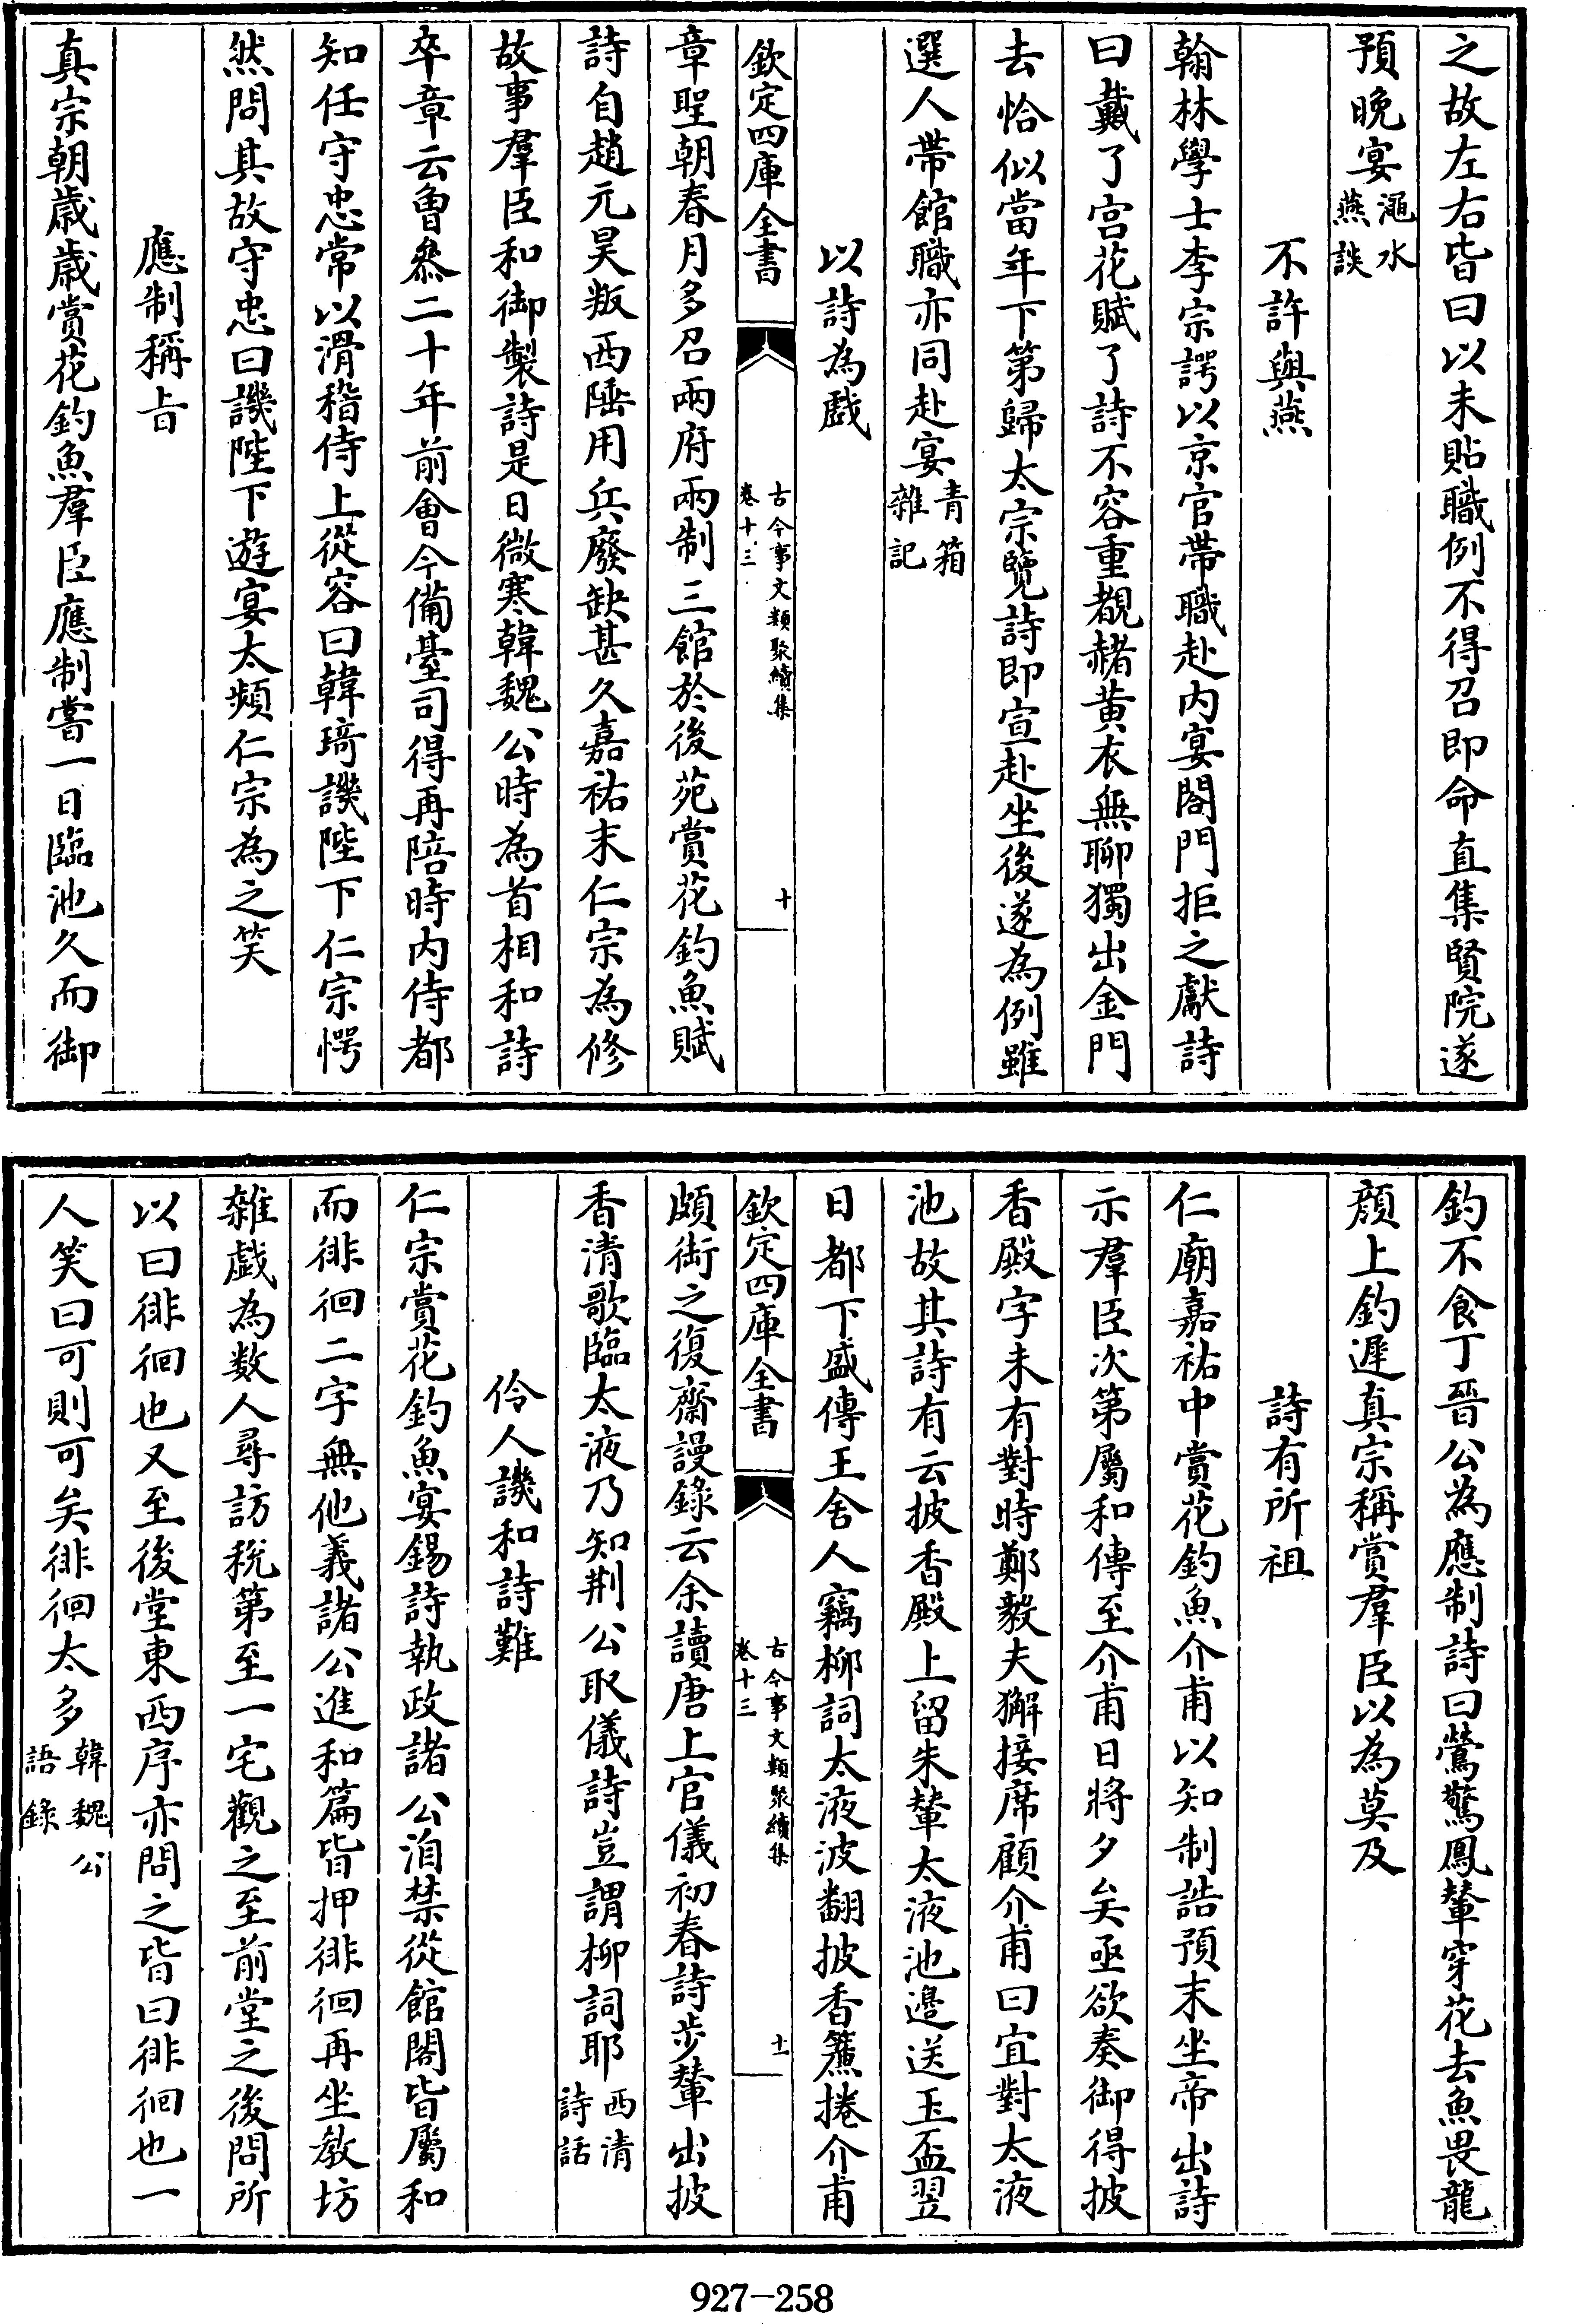 之故左右皆曰以未貼職例不得召即命直集賢院遂
預晚宴澠水燕談
不許與燕
翰林學士李宗諤以京官帶職赴内宴閤門拒之獻詩
曰戴了宫花賦了詩不容重覩赭黄衣無聊獨出金門
去恰似當年下第歸太宗覽詩即宣赴坐後遂為例雖
選人帶館職亦同赴宴青箱雜記
以詩為戲
欽定四庫全書
古今事文類聚續集
卷十三
十
章聖朝春月多召兩府兩制三館於後苑賞花釣魚賦
詩自趙元昊叛西陲用兵廢缺甚久嘉祐末仁宗為修
故事羣臣和御製詩是日微寒韓魏公時為首相和詩
卒章云曾叅二十年前會今備臺司得再陪時内侍都
知任守忠常以滑稽侍上從容曰韓琦譏陛下仁宗愕
然問其故守忠曰譏陛下遊宴太頻仁宗為之笑
應制稱旨
真宗朝歲歲賞花釣魚羣臣應制嘗一日臨池久而御
釣不食丁晉公為應制詩曰鶯驚鳳輦穿花去魚畏龍
顔上釣遲真宗稱賞羣臣以為莫及
詩有所祖
仁廟嘉祐中賞花釣魚介甫以知制誥預末坐帝出詩
示羣臣次第屬和傳至介甫日將夕矣亟欲奏御得披
香殿字未有對時鄭毅夫獬接席顧介甫曰宜對太液
池故其詩有云披香殿上留朱輦太液池邉送玉盃翌
日都下盛傳王舍人竊柳詞太液波翻披香簾捲介甫
欽定四庫全書
古今事文類聚續集
卷十三
十一
頗銜之復齋謾錄云余讀唐上官儀初春詩步輦出披
香清歌臨太液乃知荆公取儀詩豈謂柳詞耶西清詩話
伶人譏和詩難
仁宗賞花釣魚宴錫詩執政諸公洎禁從館閣皆屬和
而徘徊二字無他義諸公進和篇皆押徘徊再坐教坊
雜戲為数人尋訪稅第至一宅觀之至前堂之後問所
以曰徘徊也又至後堂東西序亦問之皆曰徘徊也一
人笑曰可則可矣徘徊太多韓魏公語錄
927-258